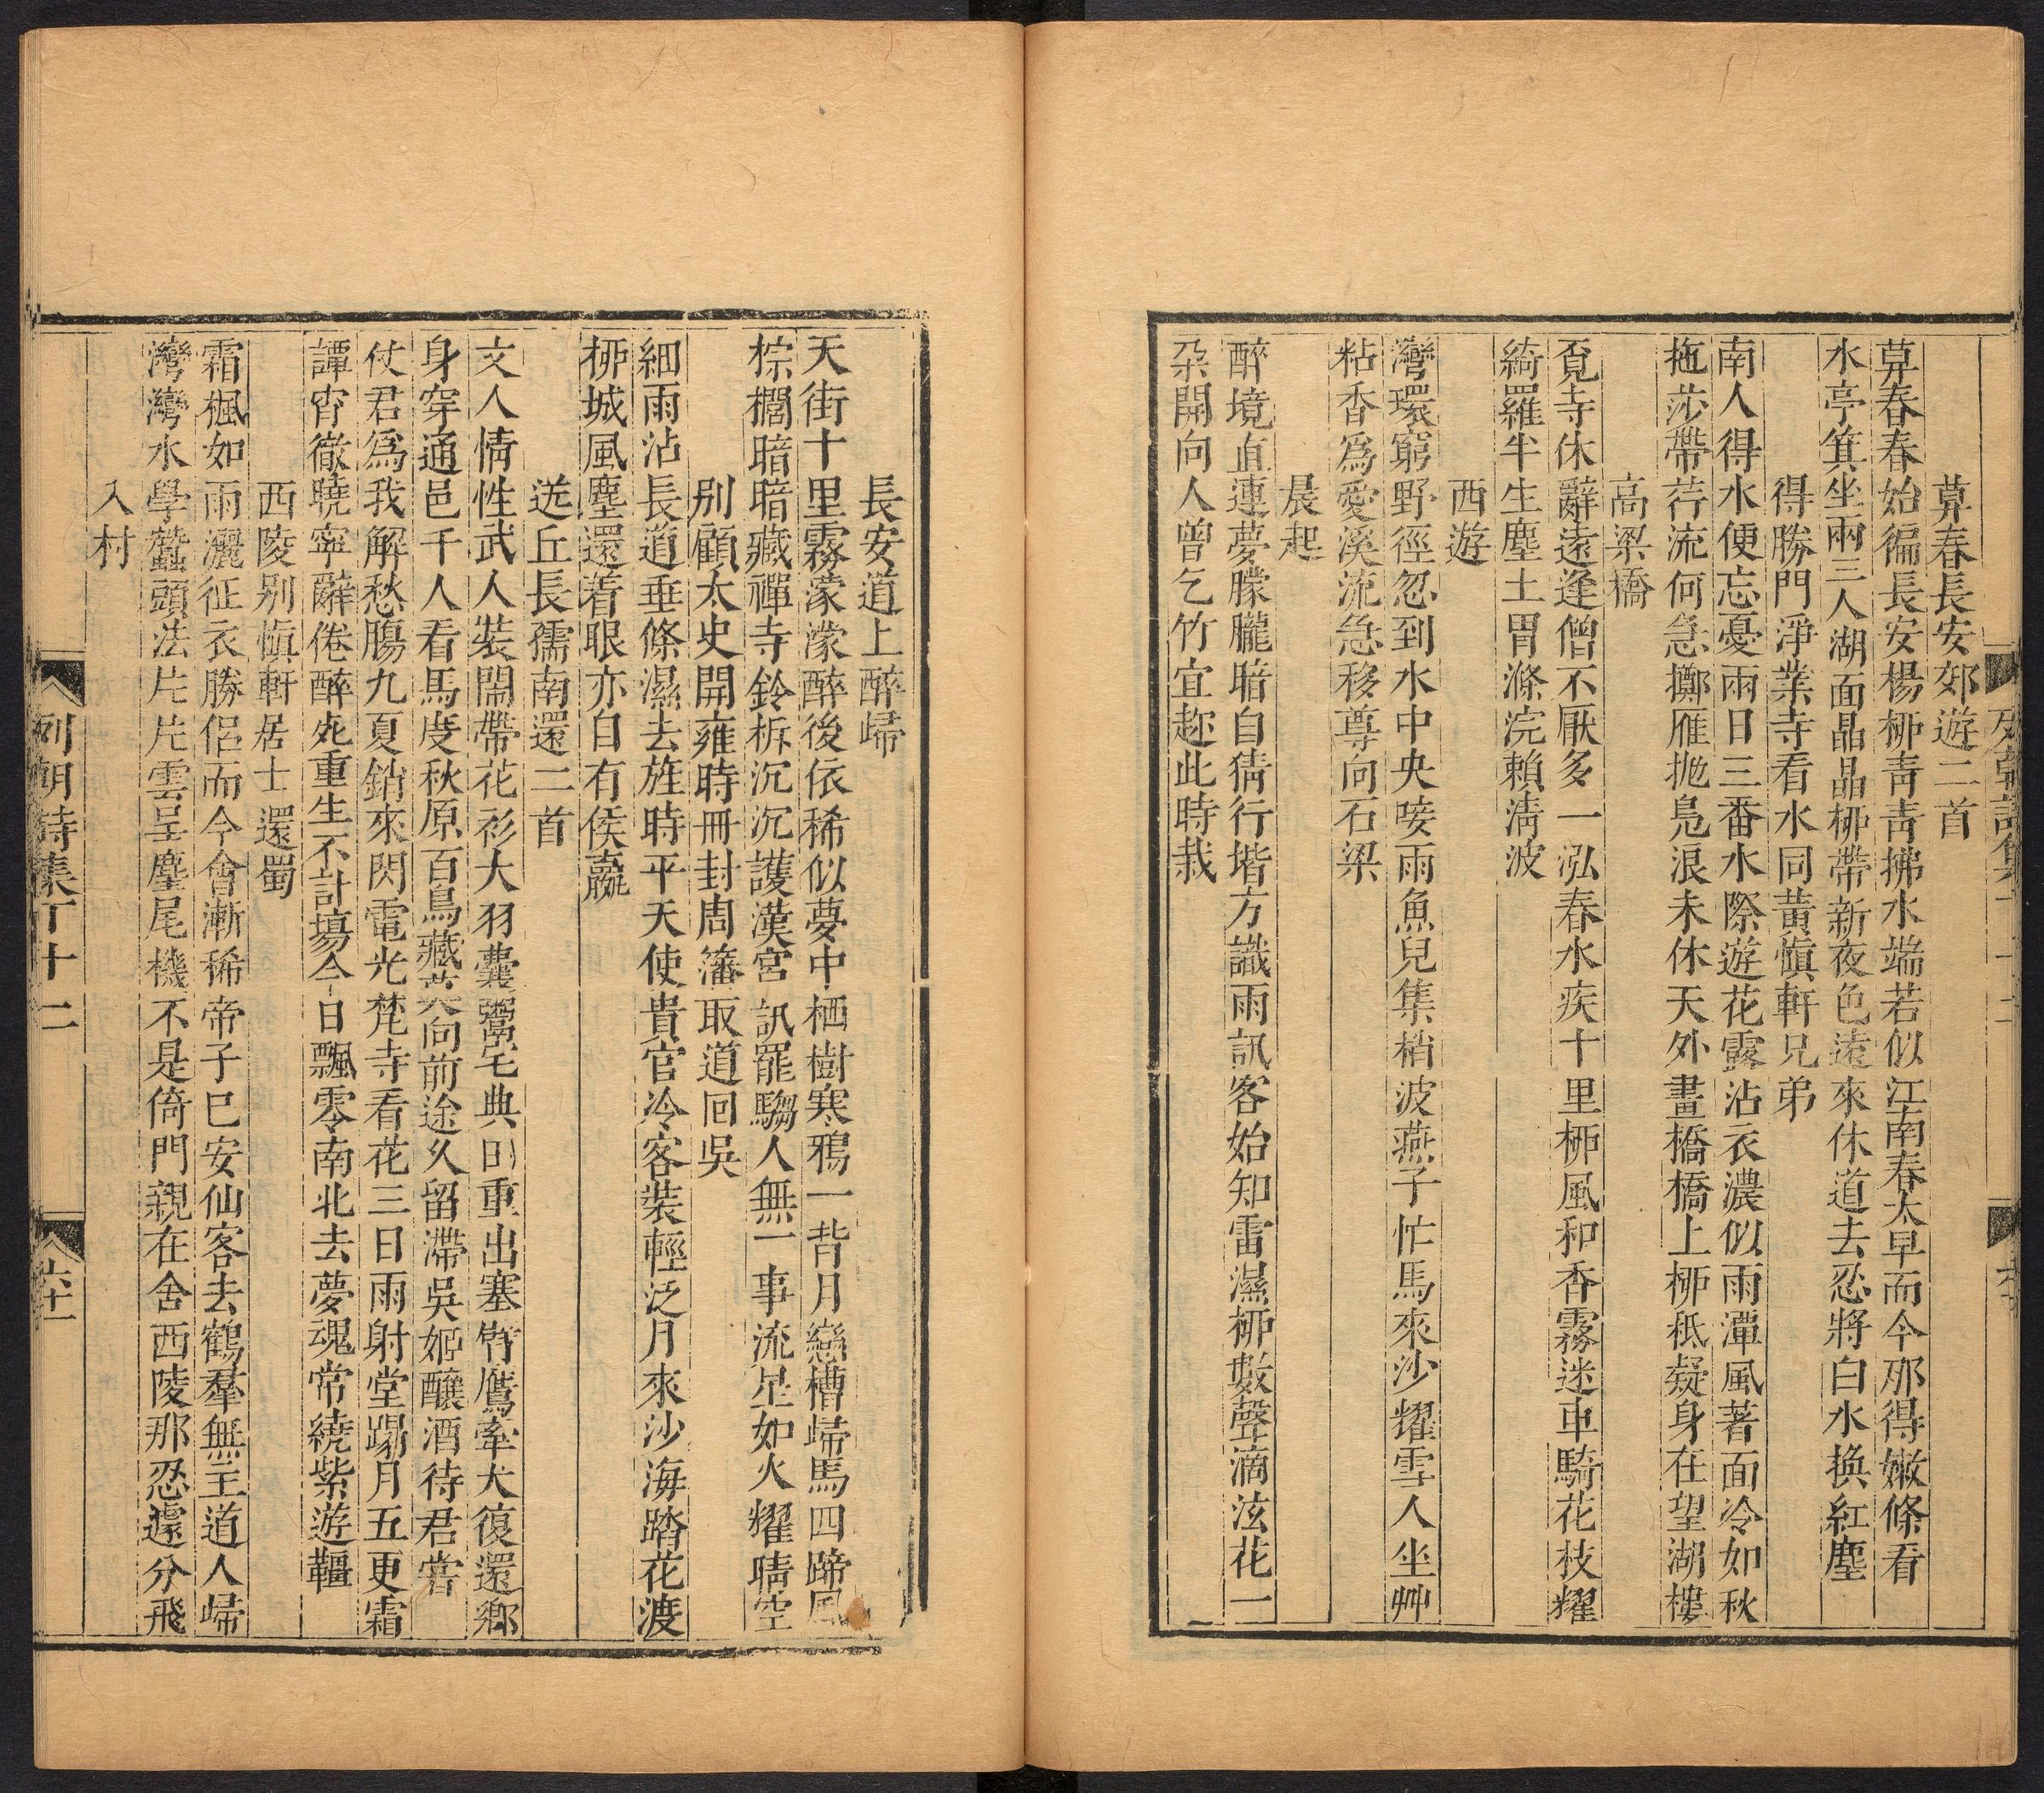 莫春長安郊遊二首
莫春春始徧長安楊栁靑靑拂水端若似江南春太早而今那得嫩條看
水亭箕坐兩三人湖面晶晶栁帶新夜色遠來休道去忍將白水換紅塵
得勝門淨業寺看水同黃愼軒兄弟
南人得水便忘憂雨日三番水際遊花露沾衣濃似雨潭風著面冷如秋
拖莎帶荇流何急擲雁抛鳧浪未休天外畫橋橋上栁秪疑身在望湖樓
高梁橋
覔寺休辭遠逢僧不厭多一泓春水疾十里栁風和香霧迷車騎花枝耀
綺羅半生塵土胃滌浣賴淸波
西遊
灣環窮野徑忽到水中央唼雨魚兒集梢波燕子忙馬來沙耀雪人坐艸
粘香爲愛溪流急移尊向石梁
晨起
醉境直連夢朦朧暗自猜行堦方識雨訊客始知雷濕栁數聲滴泫花一
朶開向人曾乞竹宜趂此時栽
長安道上醉歸
天街十里霧濛濛醉後依稀似夢中栖樹寒鴉一背月戀槽歸馬四蹄風
棕櫚暗暗藏禪寺鈴柝沉沉護漢宮訊罷騶人無一事流星如火耀晴空
别顧太史開雍時冊封周籓取道回吳
細雨沾長道垂條濕去旌時平天使貴官冷客裝輕泛月來沙海踏花渡
栁城風塵還着眼亦自有侯嬴
送丘長孺南還二首
文人情性武人裝閙帶花衫大羽囊鬻宅典田重出塞臂鷹牽犬復還鄉
身穿通邑千人看馬度秋原百鳥藏莫向前途久留滯吳姬釀酒待君甞
仗君爲我解愁腸九夏銷來閃電光梵寺看花三日雨射堂踢月五更霜
譚宵徹曉寧辭倦醉死重生不計塲今日飄零南北去夢魂常繞紫遊韁
西陵别愼軒居士還蜀
霜楓如雨灑征衣勝侶而今會漸稀帝子巳安仙客去鶴羣無主道人歸
灣灣水學蠶頭法片片雲呈麈尾機不是倚門親在舍西陵那忍遽分飛
入村
列朝詩集丁十二
六十一